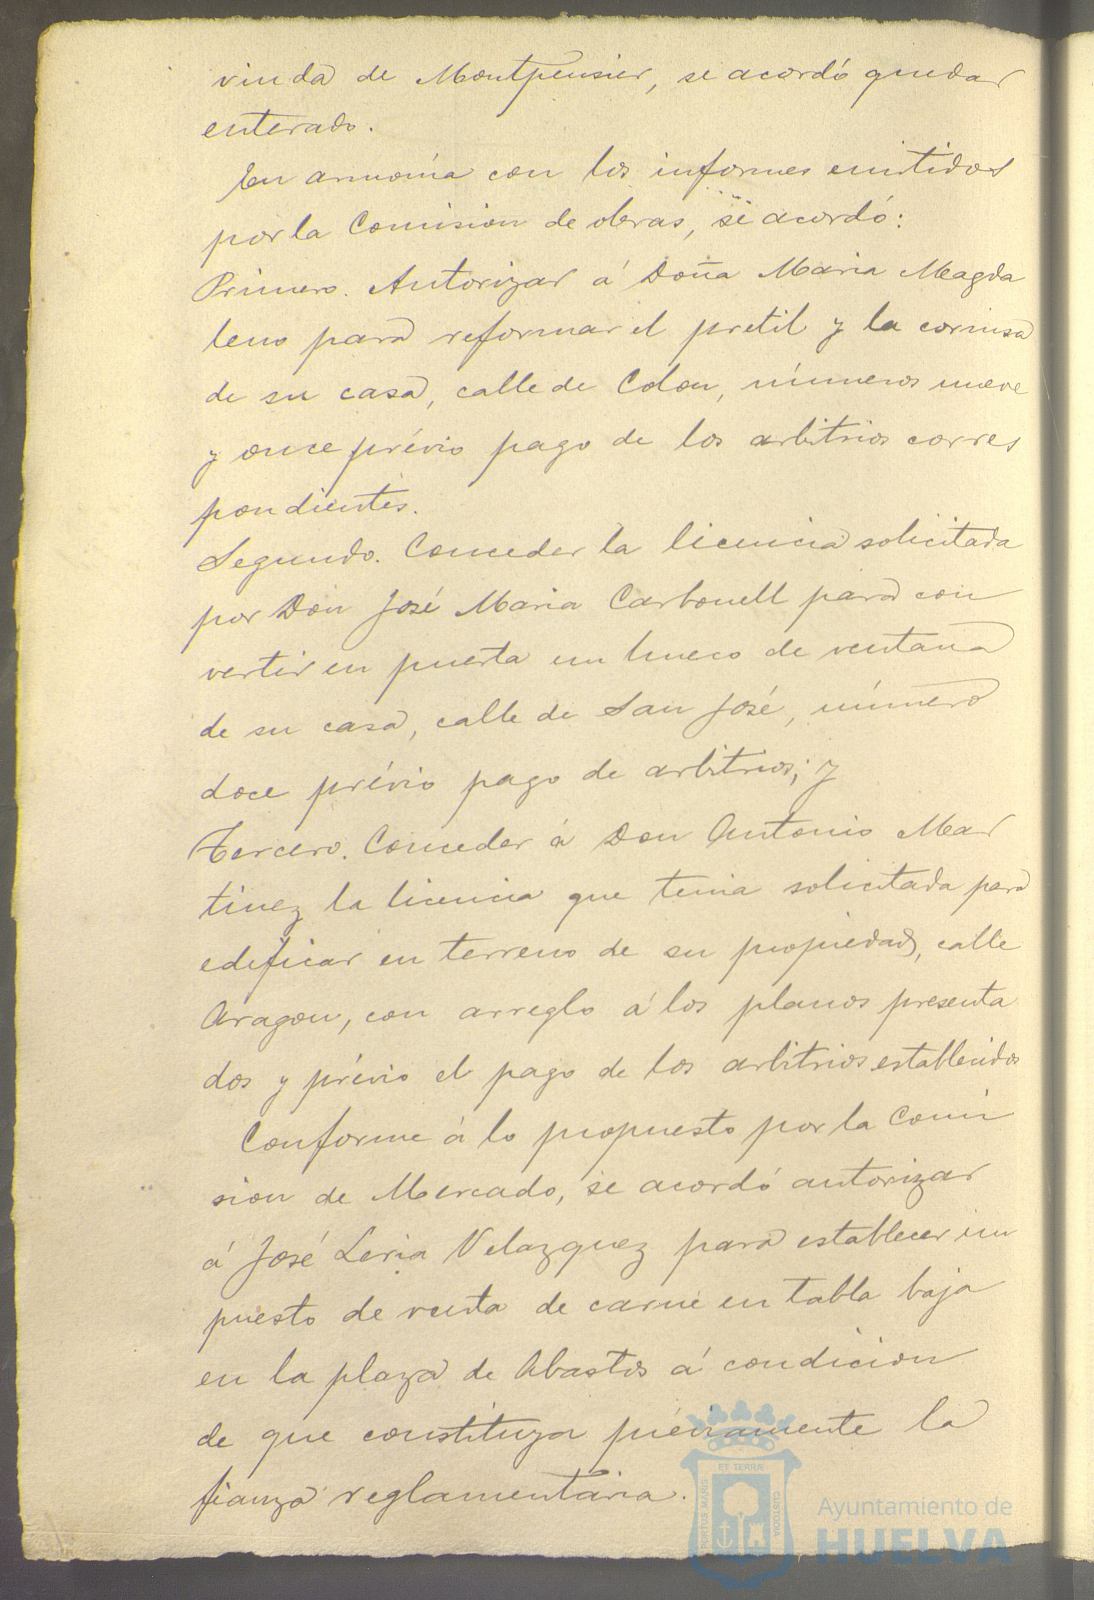 viuda de Montpensier, se acordó quedar
enterado.
En armonía con los informes emitidos
por la Comision de obras, se acordó:
Primero. Autorizar á Doña Maria Magda
leno para reformar el pretil y la cornisa
de su casa, calle de Colon, números nueve
y once prévio pago de los arbitrios corres
pondientes.
Segundo. Conceder la licencia solicitada
por Don José Maria Carbonell para con
vertir en puerta un hueco de ventana
de su casa, calle de San José, número
doce prévio pago de arbitrios; y
Tercero. Conceder á Don Antonio Mar
tinez la licencia que tenia solicitada para
edificar en terreno de su propiedad, calle
Aragon, con arreglo á los planos presenta
dos y prévio el pago de los arbitrios establecidos
Conforme á lo propuesto por la Comi
sion de Mercado, se acordó autorizar
á José Leria Velazquez para establecer un
puesto de venta de carne en tabla baja
en la plaza de Abastos á condicion
de que constituya préviamente la
fianza reglamentaria.
PORTUS MARIS ET TERRÆ CUSTODIA
Ayuntamiento de
HUELVA